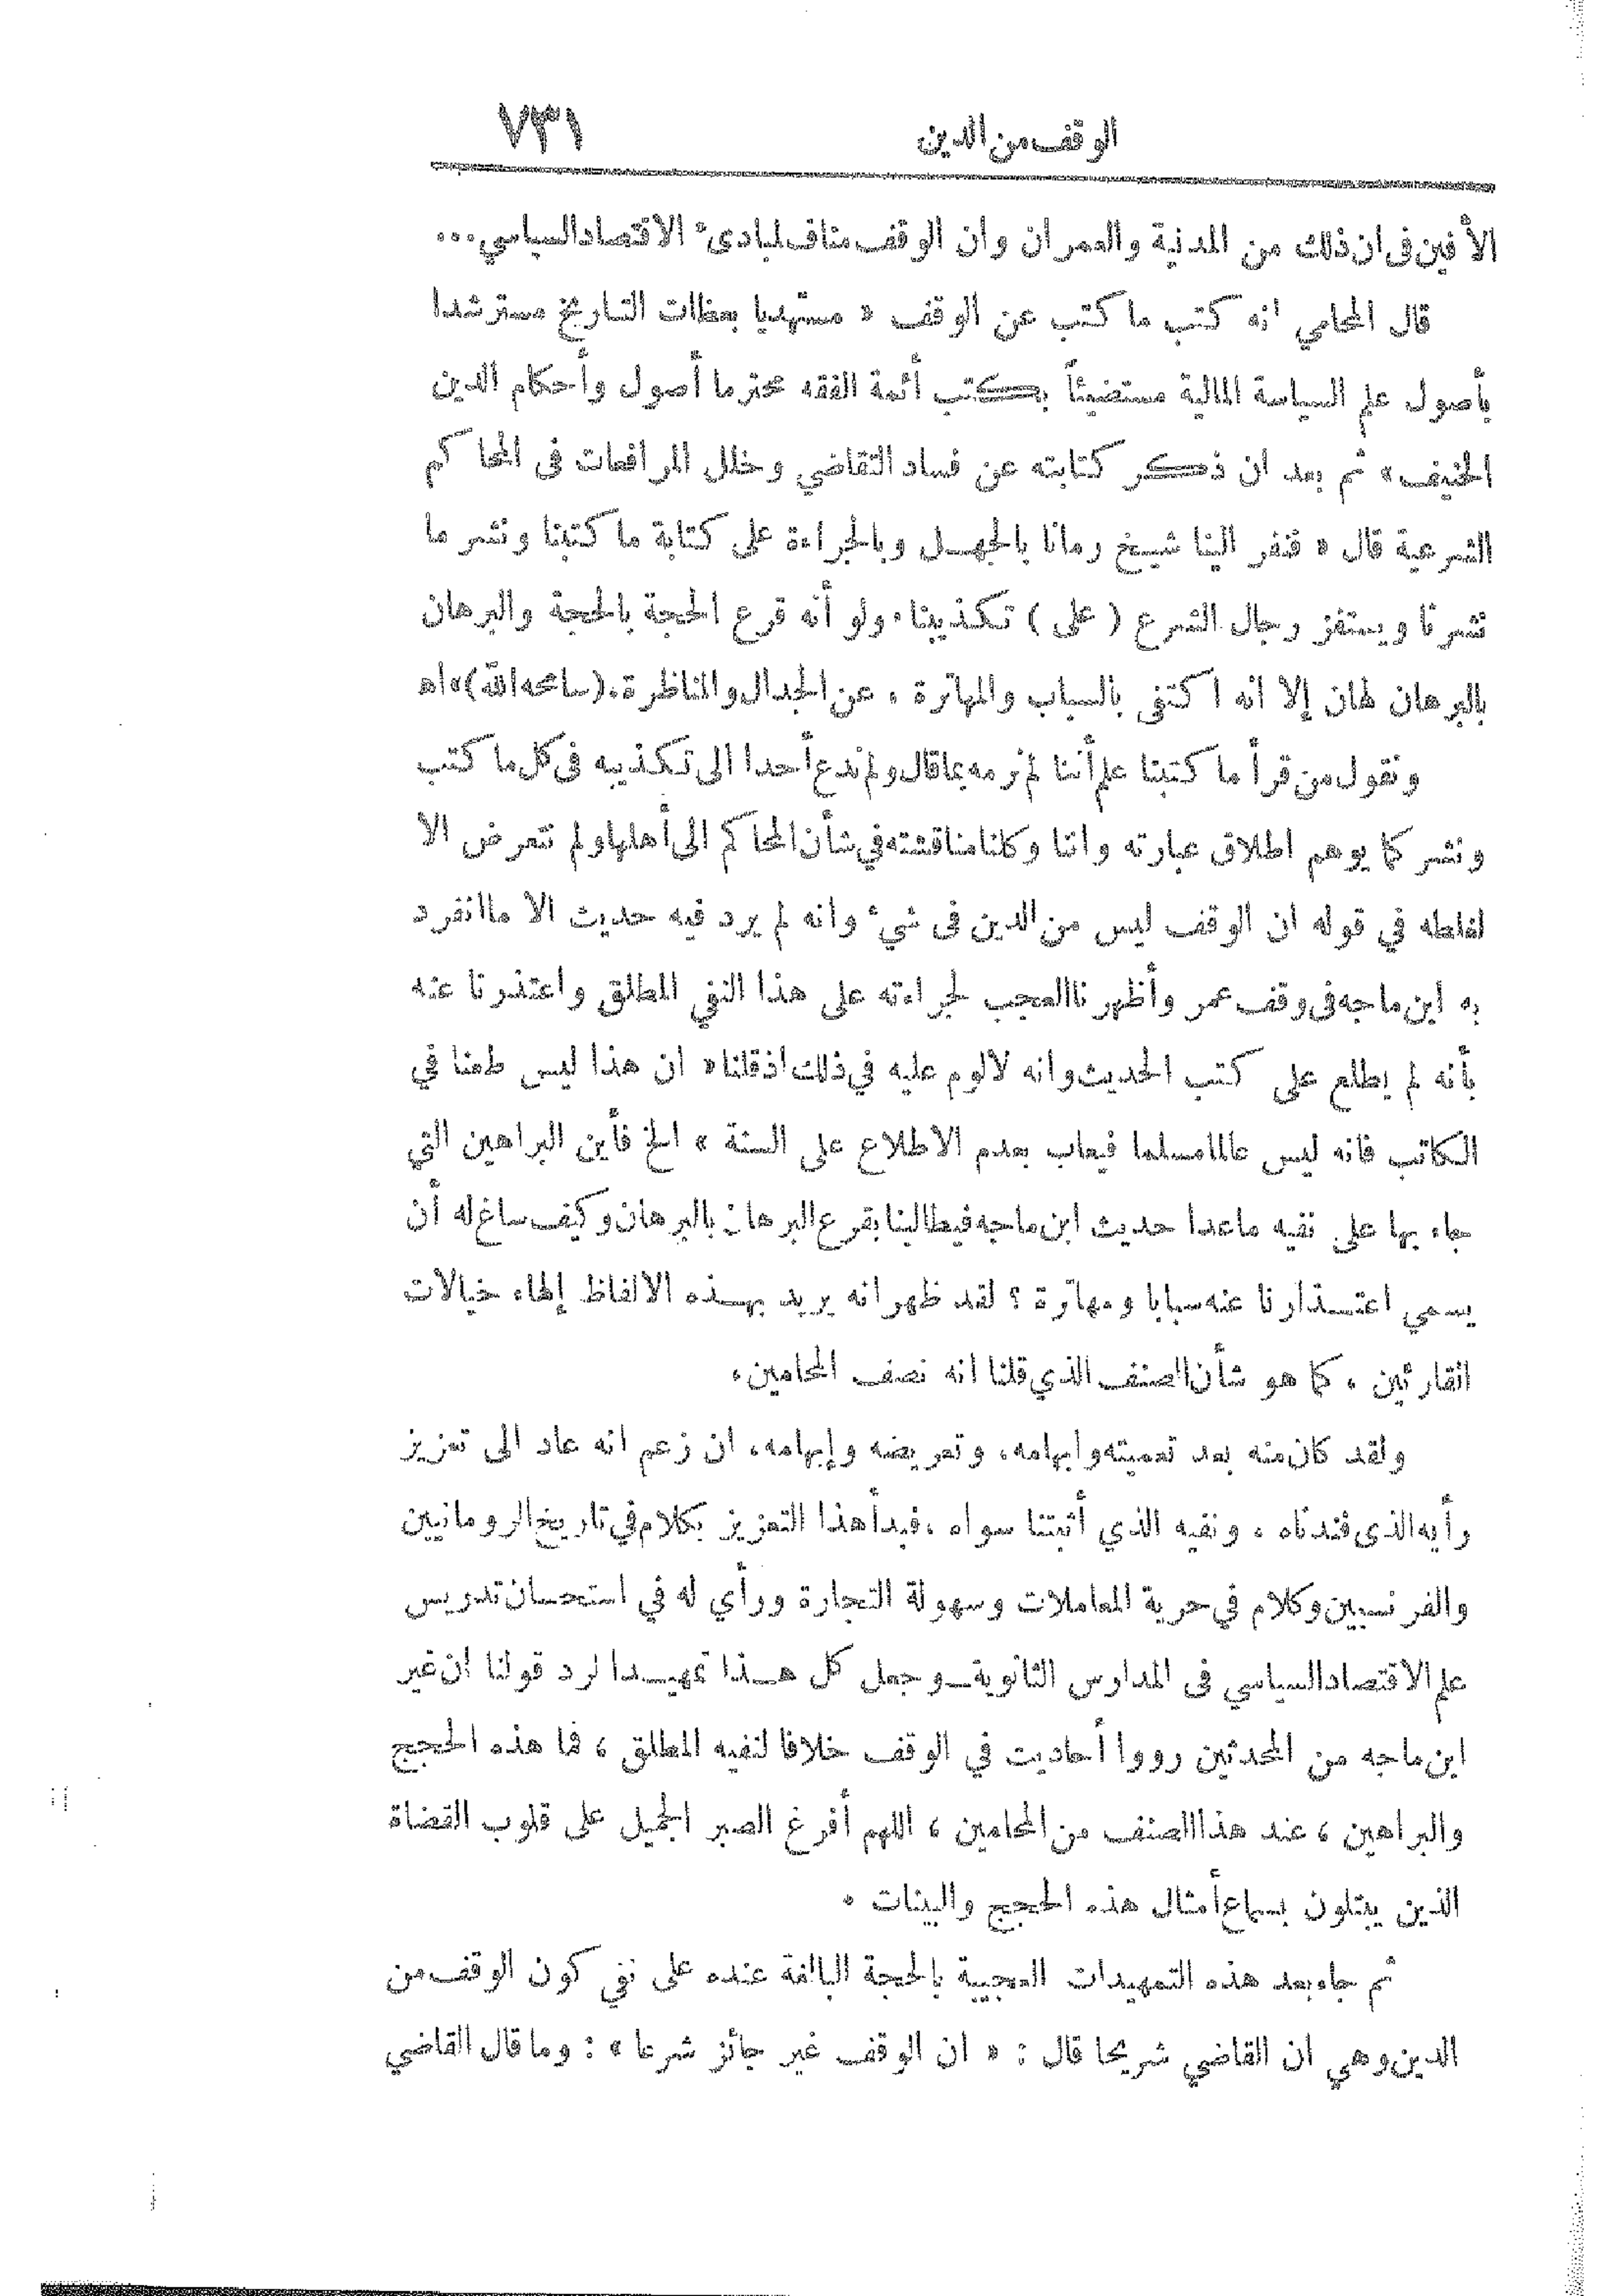 الوقف من الدين ٧٣١
الأفين فى ان ذلك من المدنية والعمران وان الوقف مناف لمبادىء الاقتصاد السياسي...
قال المحامي انه كتب ما كتب عن الوقف « مستهديا بعظات التاريخ مسترشدا
بأصول علم السياسة المالية مستضيئاً بكتب أئمة الفقه محترما أصول وأحكام الدين
الحنيف » ثم بعد ان ذكر كتابته عن فساد التقاضي وخلل المرافعات فى المحاكم
الشرعية قال « فنفر الينا شيخ رمانا بالجهل وبالجراءة على كتابة ما كتبنا ونشر ما
نشرنا ويستفز رجال الشرع ( على ) تكذيبنا. ولو أنه قرع الحجة بالحجة والبرهان
بالبرهان لهان إلا انه اكتفى بالسباب والمهاترة ، عن الجدال والمناظرة. (سامحه الله) » اه
ونقول من قرأ ما كتبنا علم أننا لم نرمه بما قال ولم ندع أحدا الى تكذيبه فى كل ما كتب
ونشر كما يوهم اطلاق عبارته واننا وكلنا مناقشته في شأن المحاكم الى أهلها ولم نتعرض الا
لغلطه في قوله ان الوقف ليس من الدين فى شيء وانه لم يرد فيه حديث الا ما انفرد
به ابن ماجه فى وقف عمر وأظهرنا العجب لجراءته على هذا النفي المطلق واعتذرنا عنه
بأنه لم يطلع على كتب الحديث وانه لا لوم عليه في ذلك اذ قلنا « ان هذا ليس طعنا في
الكاتب فانه ليس عالما مسلما فيعاب بعدم الاطلاع على السنة » الخ فأين البراهين التي
جاء بها على نفيه ماعدا حديث ابن ماجه فيطالبنا بقرع البرهان بالبرهان وكيف ساغ له أن
يسمي اعتذارنا عنه سبابا ومهاترة ؟ لقد ظهر انه يريد بهذه الالفاظ إلهاء خيالات
القارئين ، كما هو شأن الصنف الذي قلنا انه نصف المحامين.
ولقد كان منه بعد تعميته وابهامه، وتعريضه وإيهامه، ان زعم انه عاد الى تعزيز
رأيه الذى فندناه ، ونفيه الذي أثبتنا سواه ، فبدأ هذا التعزيز بكلام في تاريخ الرومانيين
والفرنسيين وكلام في حرية المعاملات وسهولة التجارة ورأي له في استحسان تدريس
علم الاقتصاد السياسي فى المدارس الثانوية ــ وجعل كل هذا تمهيدا لرد قولنا ان غير
ابن ماجه من المحدثين رووا أحاديث في الوقف خلافا لنفيه المطلق ، فما هذه الحجج
والبراهين ، عند هذا الصنف من المحامين ، اللهم أفرغ الصبر الجميل على قلوب القضاة
الذين يبتلون بسماع أمثال هذه الحجج والبينات .
ثم جاء بعد هذه التمهيدات العجيبة بالحجة البالغة عنده على نفي كون الوقف من
الدين وهي ان القاضي شريحا قال : « ان الوقف غير جائز شرعا » : وما قال القاضي